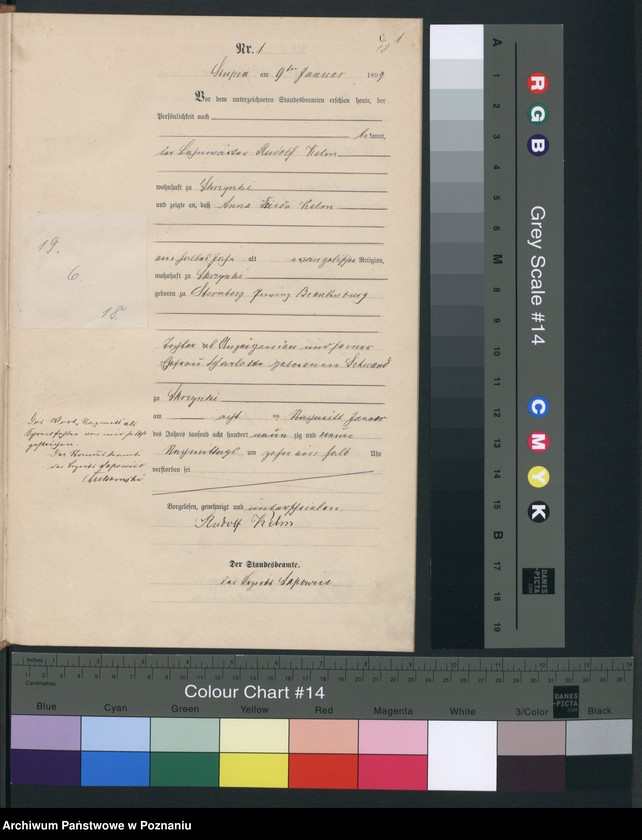 Nr. 1
1
am 9ten Januar 1899
Vor dem unterzeichneten Standesbeamten erschien heute, der
Persönlichkeit nach
bekannt,
der Rudolf Kelm
wohnhaft zu Skrzynki
und zeigte an, daß Anna Frieda Kelm
ein halbes Jahr alt evangelischer Religion,
wohnhaft zu Skrzynki
geboren zu Sternberg Provinz Brandenburg
Tochter des Anzeigenden und seiner
Ehefrau Charlotte geborenen
zu Skrzynki
am acht Januar
des Jahres tausend acht hundert neun zig und neun
Nachmittags um zehn ein halb Uhr
verstorben sei
Vorgelesen, genehmigt und unterschrieben
Rudolf Kelm
Der Standesbeamte.
des Bezirks
19.
6.
18.
Das Wort
Der Standesbeamte
des Bezirks
A
1
2
3
4
5
6
M
8
9
10
11
12
13
14
15
B
17
18
19
R
G
B
Grey Scale #14
C
M
Y
K
DANES
-PICTA
.COM
Inches
Centimetres
Colour Chart #14
DANES
-PICTA
.COM
Blue Cyan Green Yellow Red Magenta White 3/Color Black
Archiwum Państwowe w Poznaniu